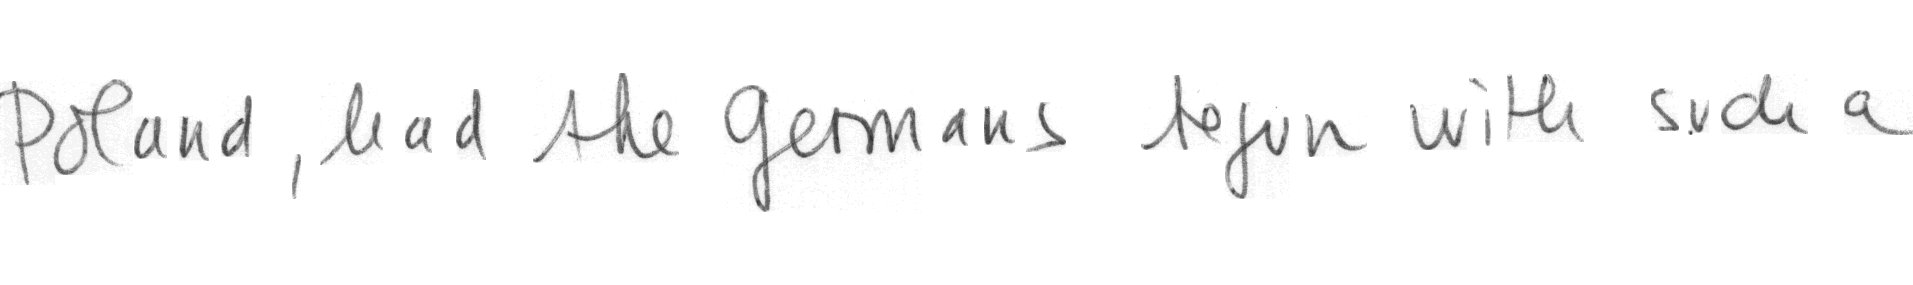 Poland, had the Germans begun with such a